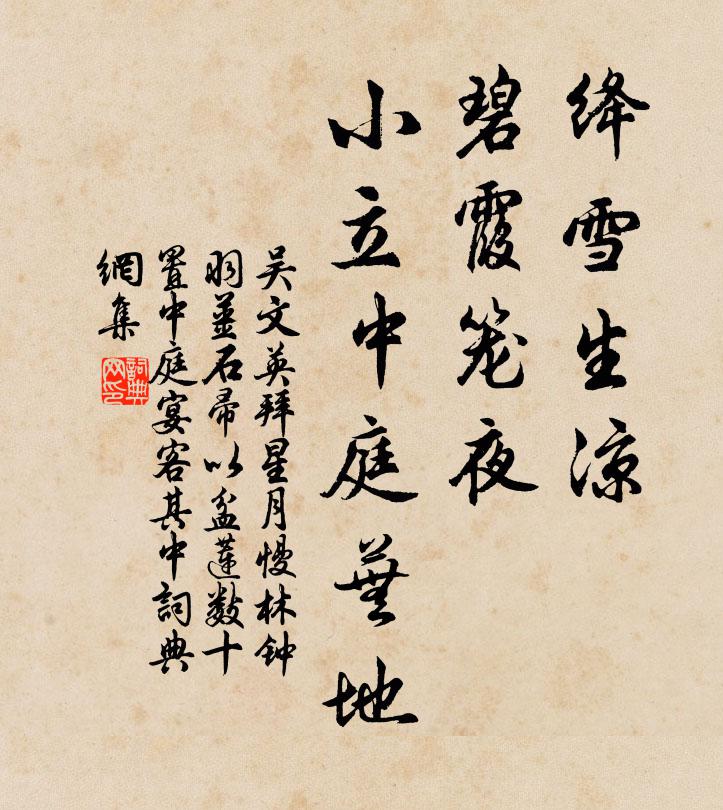 绛雪生凉
碧霞笼夜
小立中庭蕪地
吴文英拜星月慢林钟
羽薑石帚以盆蓮数十
置中庭宴客其中詞典
網集
詞典
网印